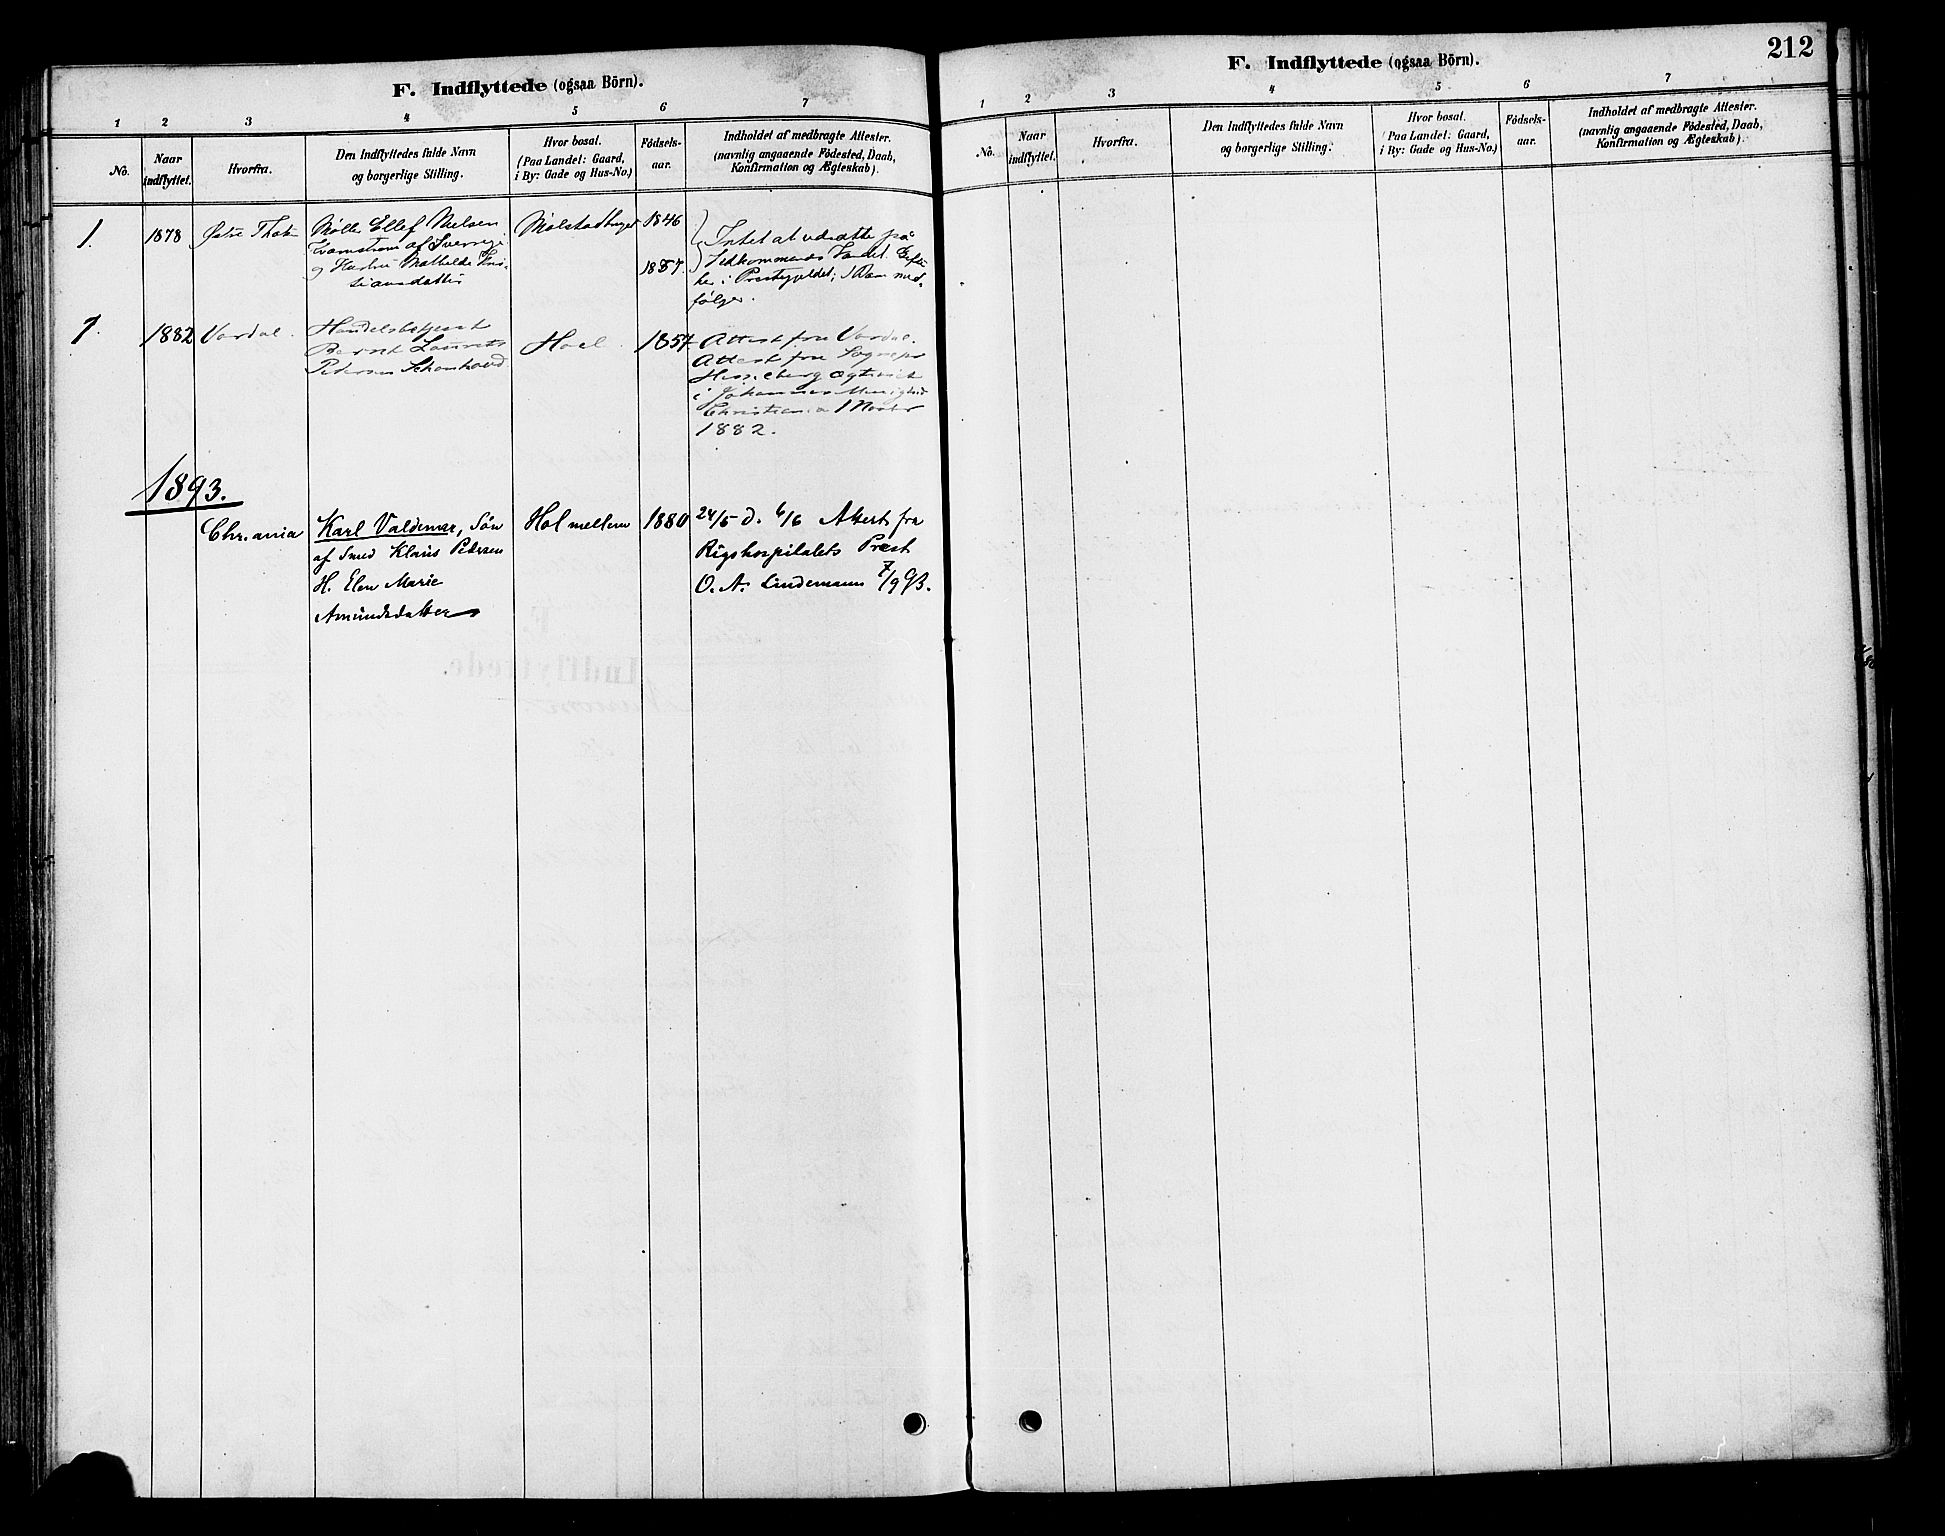 F. Indflyttede (ogsaa Börn).
1 2 3 4 5 6 7
No.
Naar
indflyttet.
Hvorfra.
Den Indflyttedes fulde Navn
og borgerlige Stilling.
Hvor bosat.
(Paa Landet: Gaard,
i By: Gade og Hus-No.)
Födsels-
aar.
Indholdet af medbragte Attester.
(navnlig angaaende Födested, Daab,
Konfirmation og Ægteskab).
1.
1878
Østre Thoten
Møller Ellef Nielsen
af Sverrige
og Hustru Mathilde Kri-
stiansdatter
1846
1857.
Intet at udsætte på
Vedkommendes Vandel. Gifte
her i Prestegjeldet; 1 Barn med-
følger.
1.
1882
Vardal.
Handelsbetjent
Bernt Laurits
Pedersen
Hoel
1857
Attest fra Vardal.
Attest fra Sognepr
Hesselberg
i Johannes Menighed
Christiania
1882.
1893.
Chr.ania
Karl Valdemar, Søn
af Smed Klaus Petersen
H. Elen Marie
Amundsdatter
Hol mellem
1880
24/5 d. 6/6 Attest fra
Rigshospitalets Prest
O. A. Lindemann 7/9 93.
F. Indflyttede (ogsaa Börn).
212
1 2 3 4 5 6 7
No.
Naar
indflyttet.
Hvorfra.
Den Indflyttedes fulde Navn
og borgerlige Stilling.
Hvor bosat.
(Paa Landet: Gaard,
i By: Gade og Hus-No.)
Födsels-
aar.
Indholdet af medbragte Attester.
(navnlig angaaende Födested, Daab,
Konfirmation og Ægteskab).